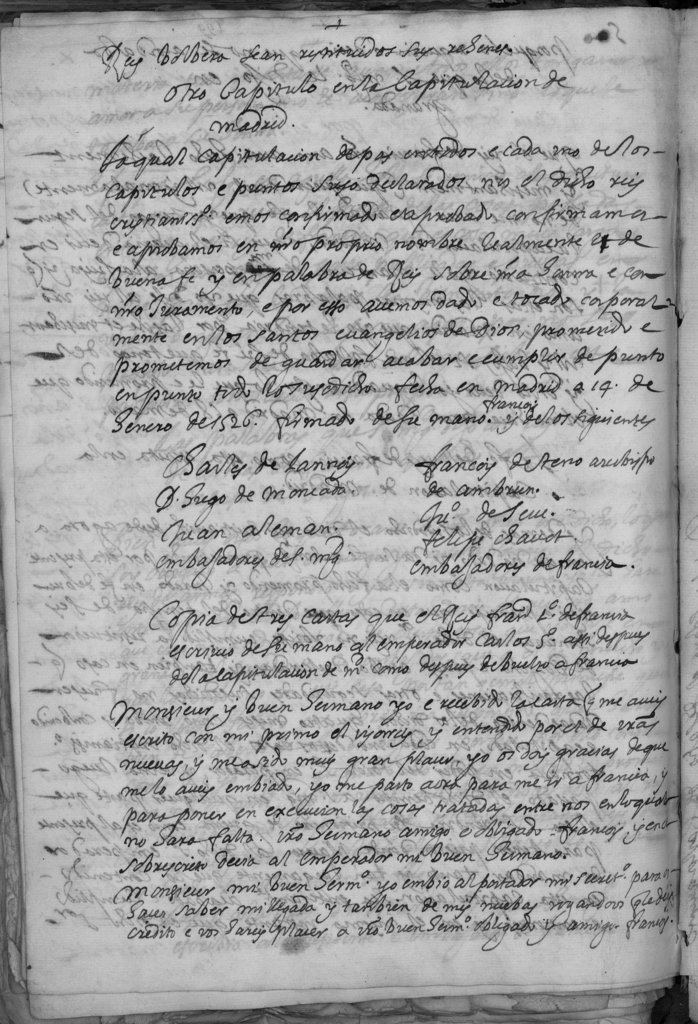 Rey bolbera sean restituidos sus rehenes.
otro Capitulo en la Capitulacion de
madrid.
La qual Capitulacion de paz en todos e cada uno de los
Capitulos e puntos suso declarados nos el dicho rey
cristianiss.º emos confirmado e aprobado confirmamos
e aprobamos en nr̃o proprio nombre Realmente y de
buena fe y en palabra de Rey sobre nr̃a honrra e con
nr̃o Juramento, e por esso avemos dado e tocado corporal
mente en los santos evangelios de Dios, prometido e
prometemos de guardar acabar e cumplir de punto
en punto todo lo susodicho fecha en madrid a 14. de
henero de 1526. firmado de su mano. françois y de los siguientes
Charles de lannoy françois de arcobispo
D. hugo de moncada. de ambrun.
Juan aleman. Ju.º de
embaxadores de s. mg. felipe chavot
embaxadores de francia.
Copia de tres cartas que el Rey fran.co 1.º de francia
escrivio de su mano al emperador Carlos 5.º assi despues
de la capitulacion de m.d como despues de buelto a francia
Monsieur y buen hermano yo e recebido la carta q̃ me aveis
escrito con mi primo el visorey y entendido por el de vr̃as
nuevas, y me a sido muy gran plazer, yo os doy gracias de que
me lo aveis embiado, yo me parto aora para me ir a francia, y
para poner en execucion las cosas tratadas entre nos en lo qual
no hara falta. vr̃o hermano amigo e obligado. françois, y en el
sobrescrito decia al emperador mi buen hermano.
Monsieur mi buen herm.º yo embio al portador mi secret.º para os
hacer saber mi llegada y tambien de mis nuebas rogandoos q̃ le deis
credito e vos hareis plazer a vr̃o buen herm.º obligado y amigo. françois.